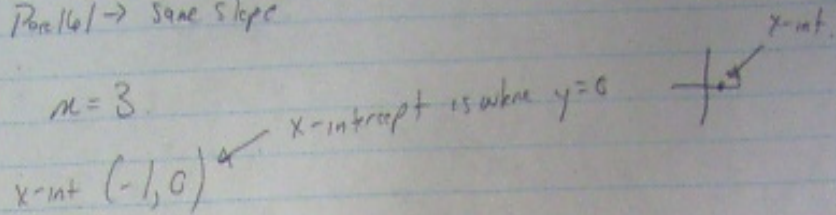 Parallel → same slope
x-int.
m = 3
x-intercept is where y=0
x-int (-1, 0)